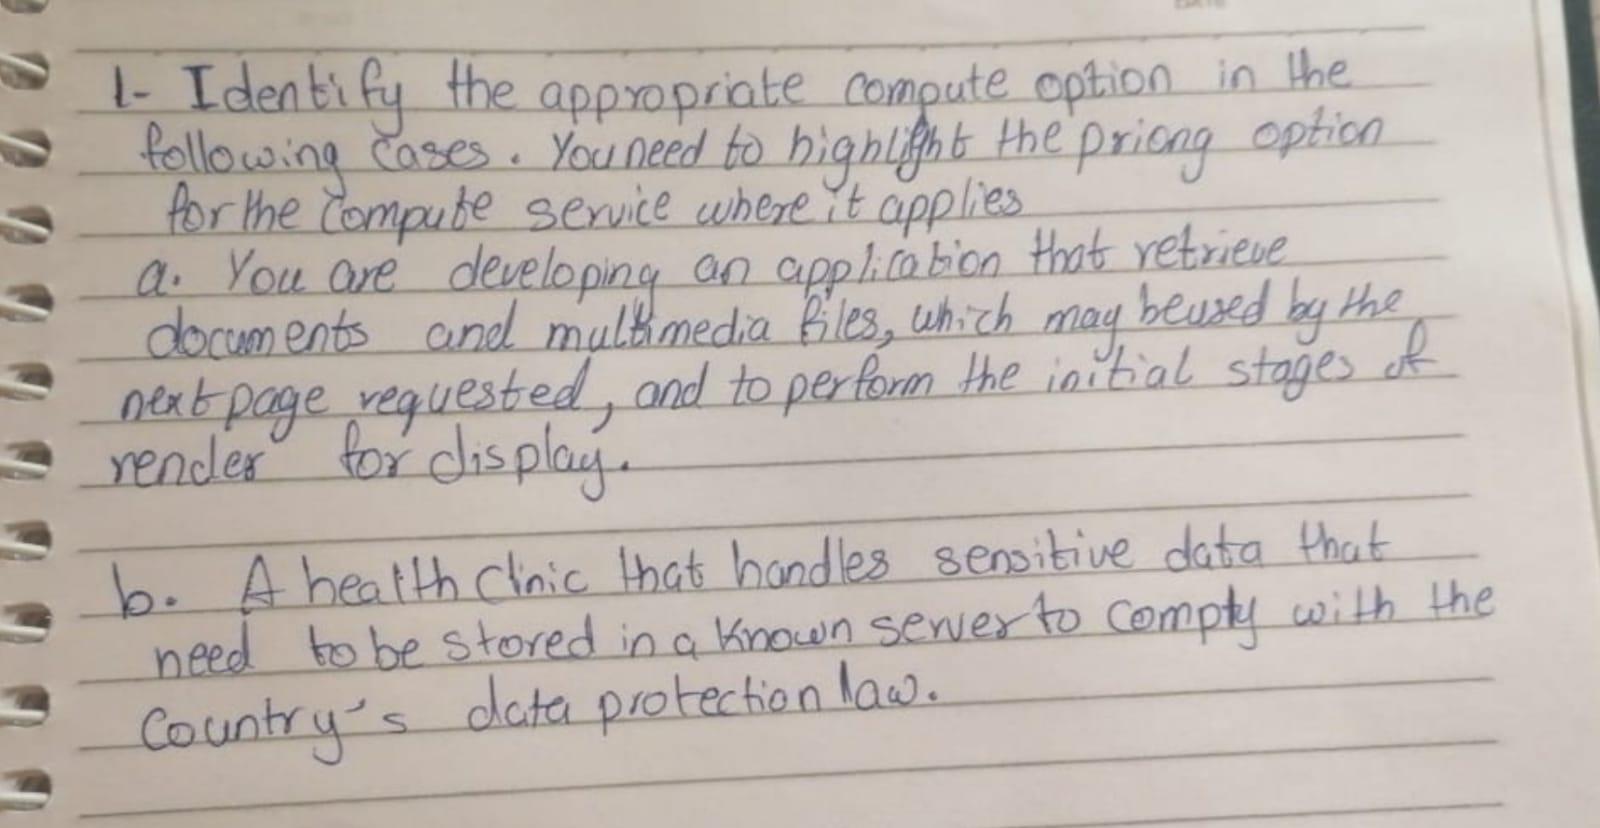 1- Identify the appropriate compute option in the
following Cases. You need to highlight the pricng option
for the Compute service where it applies
a. You are developing an application that retrieve
documents and multimedia files, which may be used by the
next page requested, and to perform the initial stages of
render for display.
b. A health Clinic that handles sensitive data that
need to be stored in a Known server to comply with the
Country's data protection law.